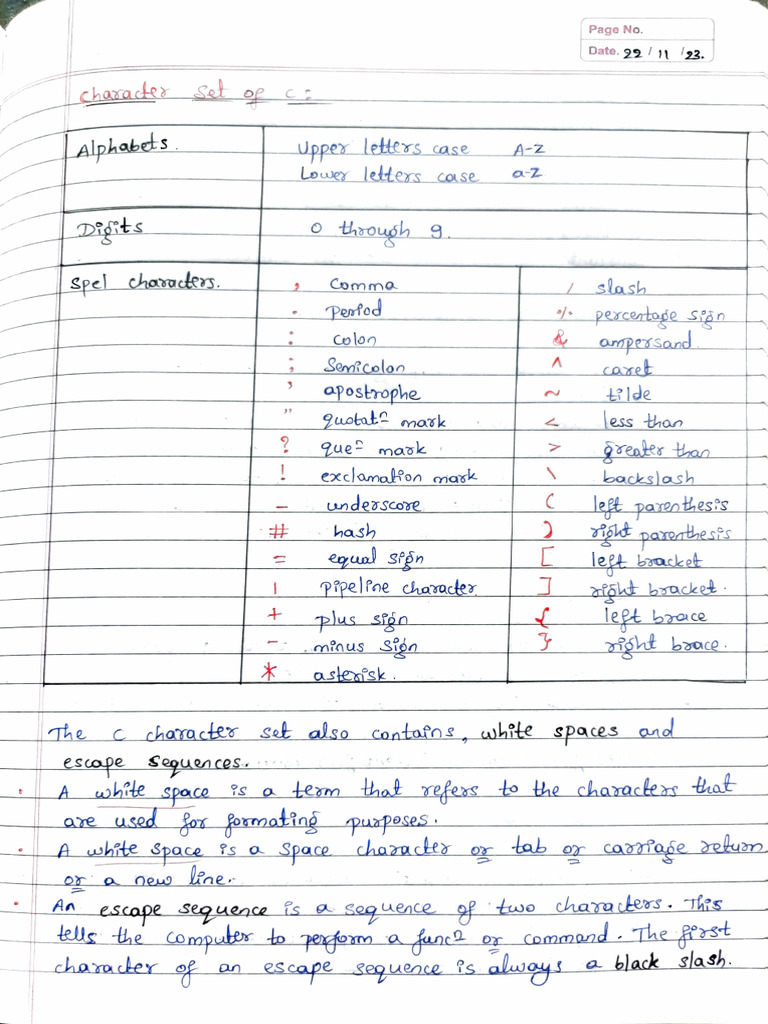 Page No.
Date. 22 / 11 / 23.
Character Set of C:
Alphabets. Upper letters case A-Z
Lower letters case a-z
Digits 0 through 9.
Spel characters. , comma / slash
. Period % percentage sign
: colon & ampersand
; Semicolon ^ caret
' apostrophe ~ tilde
" quotatⁿ mark < less than
? queⁿ mark > greater than
! exclamation mark \ backslash
_ underscore ( left parenthesis
# hash ) right parenthesis
= equal sign [ left bracket
| pipeline character ] right bracket.
+ plus sign { left brace
- minus sign } right brace.
* asterisk.
The C character set also contains, white spaces and
escape sequences.
• A white space is a term that refers to the characters that
are used for formating purposes.
• A white space is a space character or tab or carriage return
or a new line.
• An escape sequence is a sequence of two characters. This
tells the computer to perform a funcⁿ or command. The first
character of an escape sequence is always a black slash.